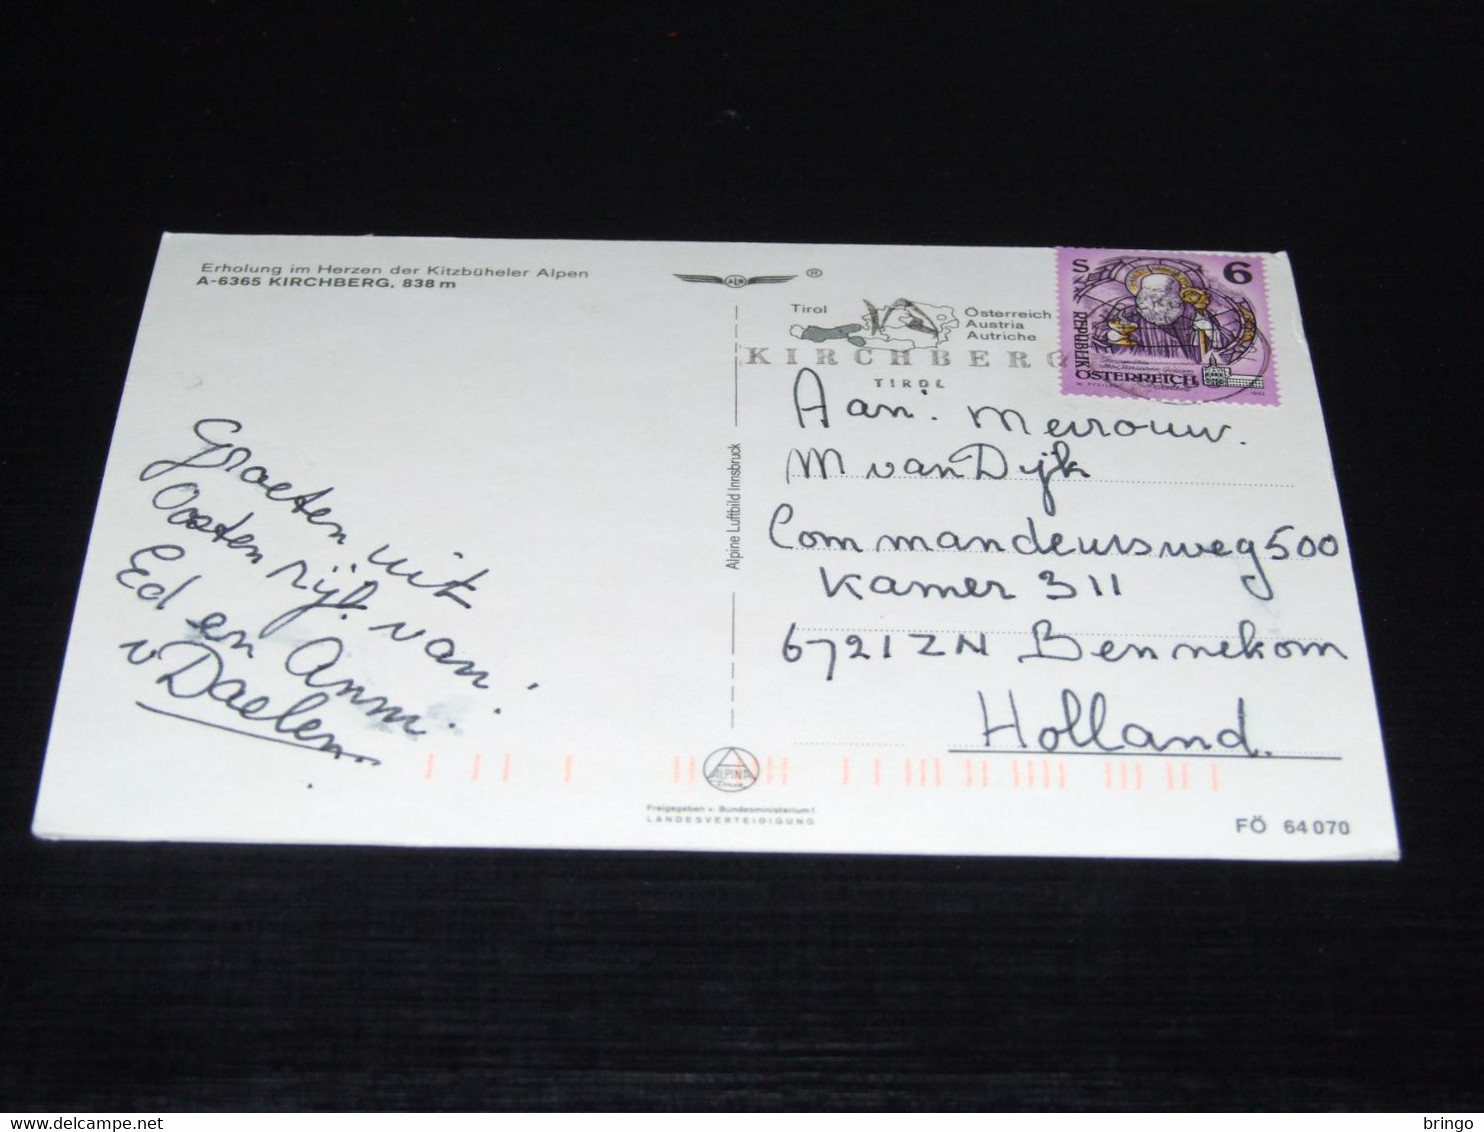 Erholung im Herzen der Kitzbüheler Alpen
A-6365 KIRCHBERG, 838 m
Groeten uit
Oostenrijk van:
Ed en Anm.
v Daelen
Alpine Luftbild Innsbruck
ALPINA
Druck
Freigegeben v. Bundesministerium f.
LANDESVERTEIDIGUNG
®
Tirol
Österreich
Austria
Autriche
KIRCHBERG
TIROL
S 6
REPUBLIK
ÖSTERREICH
Aan: Mevrouw.
M van Dijk
Commandeursweg 500
Kamer 311
6721ZN Bennekom
Holland.
FÖ 64 070
bringo